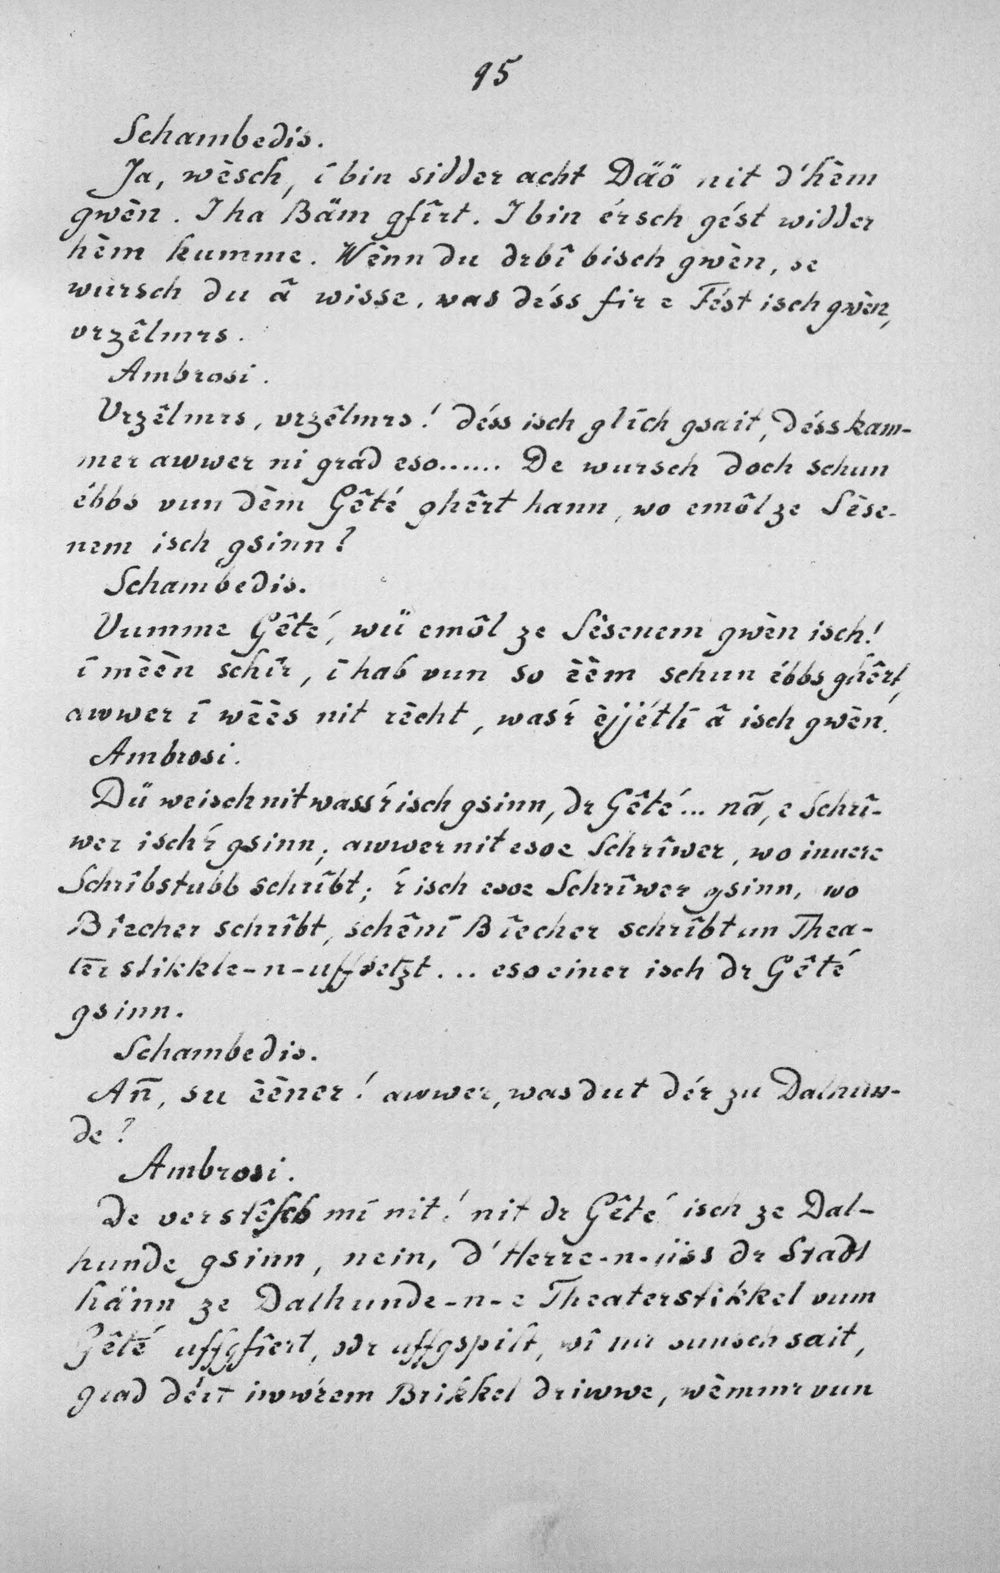 95
Schambedis.
Ja, wèsch, ī bin sidder acht Däö nit d'hèm
gwèn. I ha Bäm gfîrt. I bin érsch gést widder
hèm kumme. Wènn du drbî bisch gwèn, se
wursch du â wisse, was déss fir e Fést isch gwèn,
vrzêlmrs.
Ambrosi.
Vrzêlmrs, vrzêlmrs! déss isch glīch gsait, déss kam-
mer awwer ni grád eso...... De wursch doch schun
ébbs vun dèm Gêté ghêrt hann, wo emôl ze Sèse-
nem isch gsinn?
Schambedis.
Vumme Gêté, wü emôl ze Sèsenem gwèn isch!
ī mèèn schîr, ī hab vun so èèm schun ébbs ghêrt,
awwer ī wèès nit rècht, was'r èjjétlī â isch gwèn.
Ambrosi.
Dü weisch nit wass'r isch gsinn, dr Gêté... nã, e Schrî-
wer isch'r gsinn; awwer nit esoe Schrîwer, wo innere
Schrîbstubb schrîbt; 'r isch esoe Schrîwer gsinn, wo
Bîecher schrîbt, schênī Bîecher schrîbt un Thea-
terstikkle-n-uffsetzt... eso einer isch dr Gêté
gsinn.
Schambedis.
Añ, su èèner! awwer, was dut dér zu Dalhun-
de?
Ambrosi.
De verstêsch mī nit! nit dr Gêté isch ze Dal-
hunde gsinn, nein, d'Herre-n-üss dr Stadt
hänn ze Dalhunde-n-e Theaterstikkel vum
Gêté uffgfîert, odr uffgspilt, wî mr sunsch sait,
grad dért iwwrem Brikkel driwwe, wèmmr vun